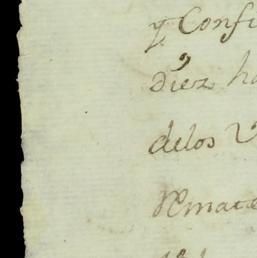 y Confi
Diez ha
delos V
Remate